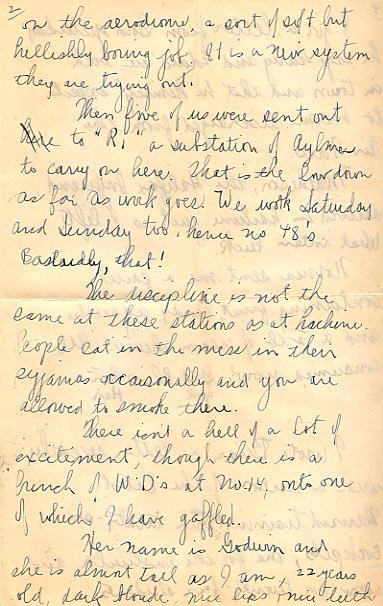 2
on the aerodrome, a sort of soft but
hellishly boring job. It is a new system
they are trying out.
Then five of us were sent out
to "R1" a substation of Aylmer
to carry on here. That is the lowdown
as far as work goes. We work Saturday
and Sunday too, hence no 48s.
Bastardly, that!
The discipline is not the
same at these stations as at Lachine.
People eat in the mess in their
pyjamas occaisonally and you are
allowed to smoke there.
There isn't a hell of a lot of
excitement, though there is a
bunch of W.D's at No. 14, onto one
of which I have gaffled.
Her name is Godwin and
she is almost tall as I am, 22 years
old, dark blonde, nice lips, nice teeth